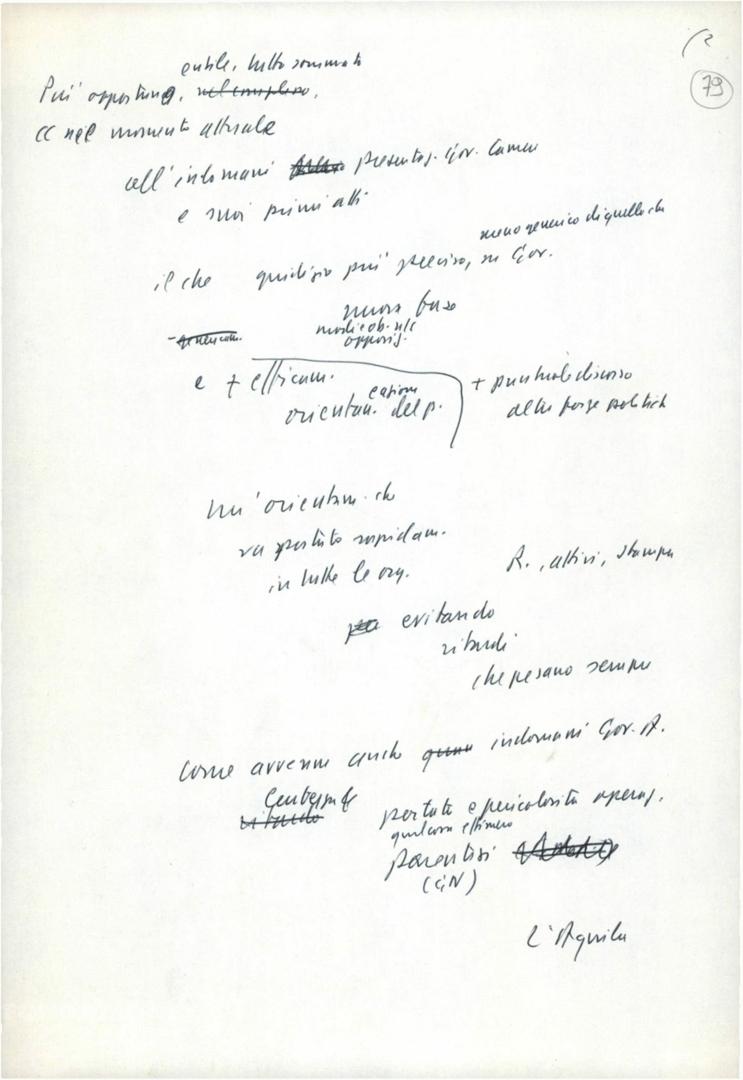 79
e utile, tutto sommato
Più opportuno, nel complesso,
CC nel momento attuale
all'indomani presentaz. Gov. Camere
e suoi primi atti
meno generico di quello che
il che giudizio più preciso, su Gov.
nuova base
modi e ob. n/s
opposiz.
- generican.
e + efficam.
orientam. del p.
+ puntuale discorso
altre forze politich
Un' orientam. che
va portato rapidam.
in tutte le org.
R., attivi, stampa
evitando
ritardi
che pesano sempre
Come avvenne anche indomani Gov. A.
ritardo
portata e pericolosità operaz.
qualcosa effimero
parentesi
(CiN)
L'Aquila